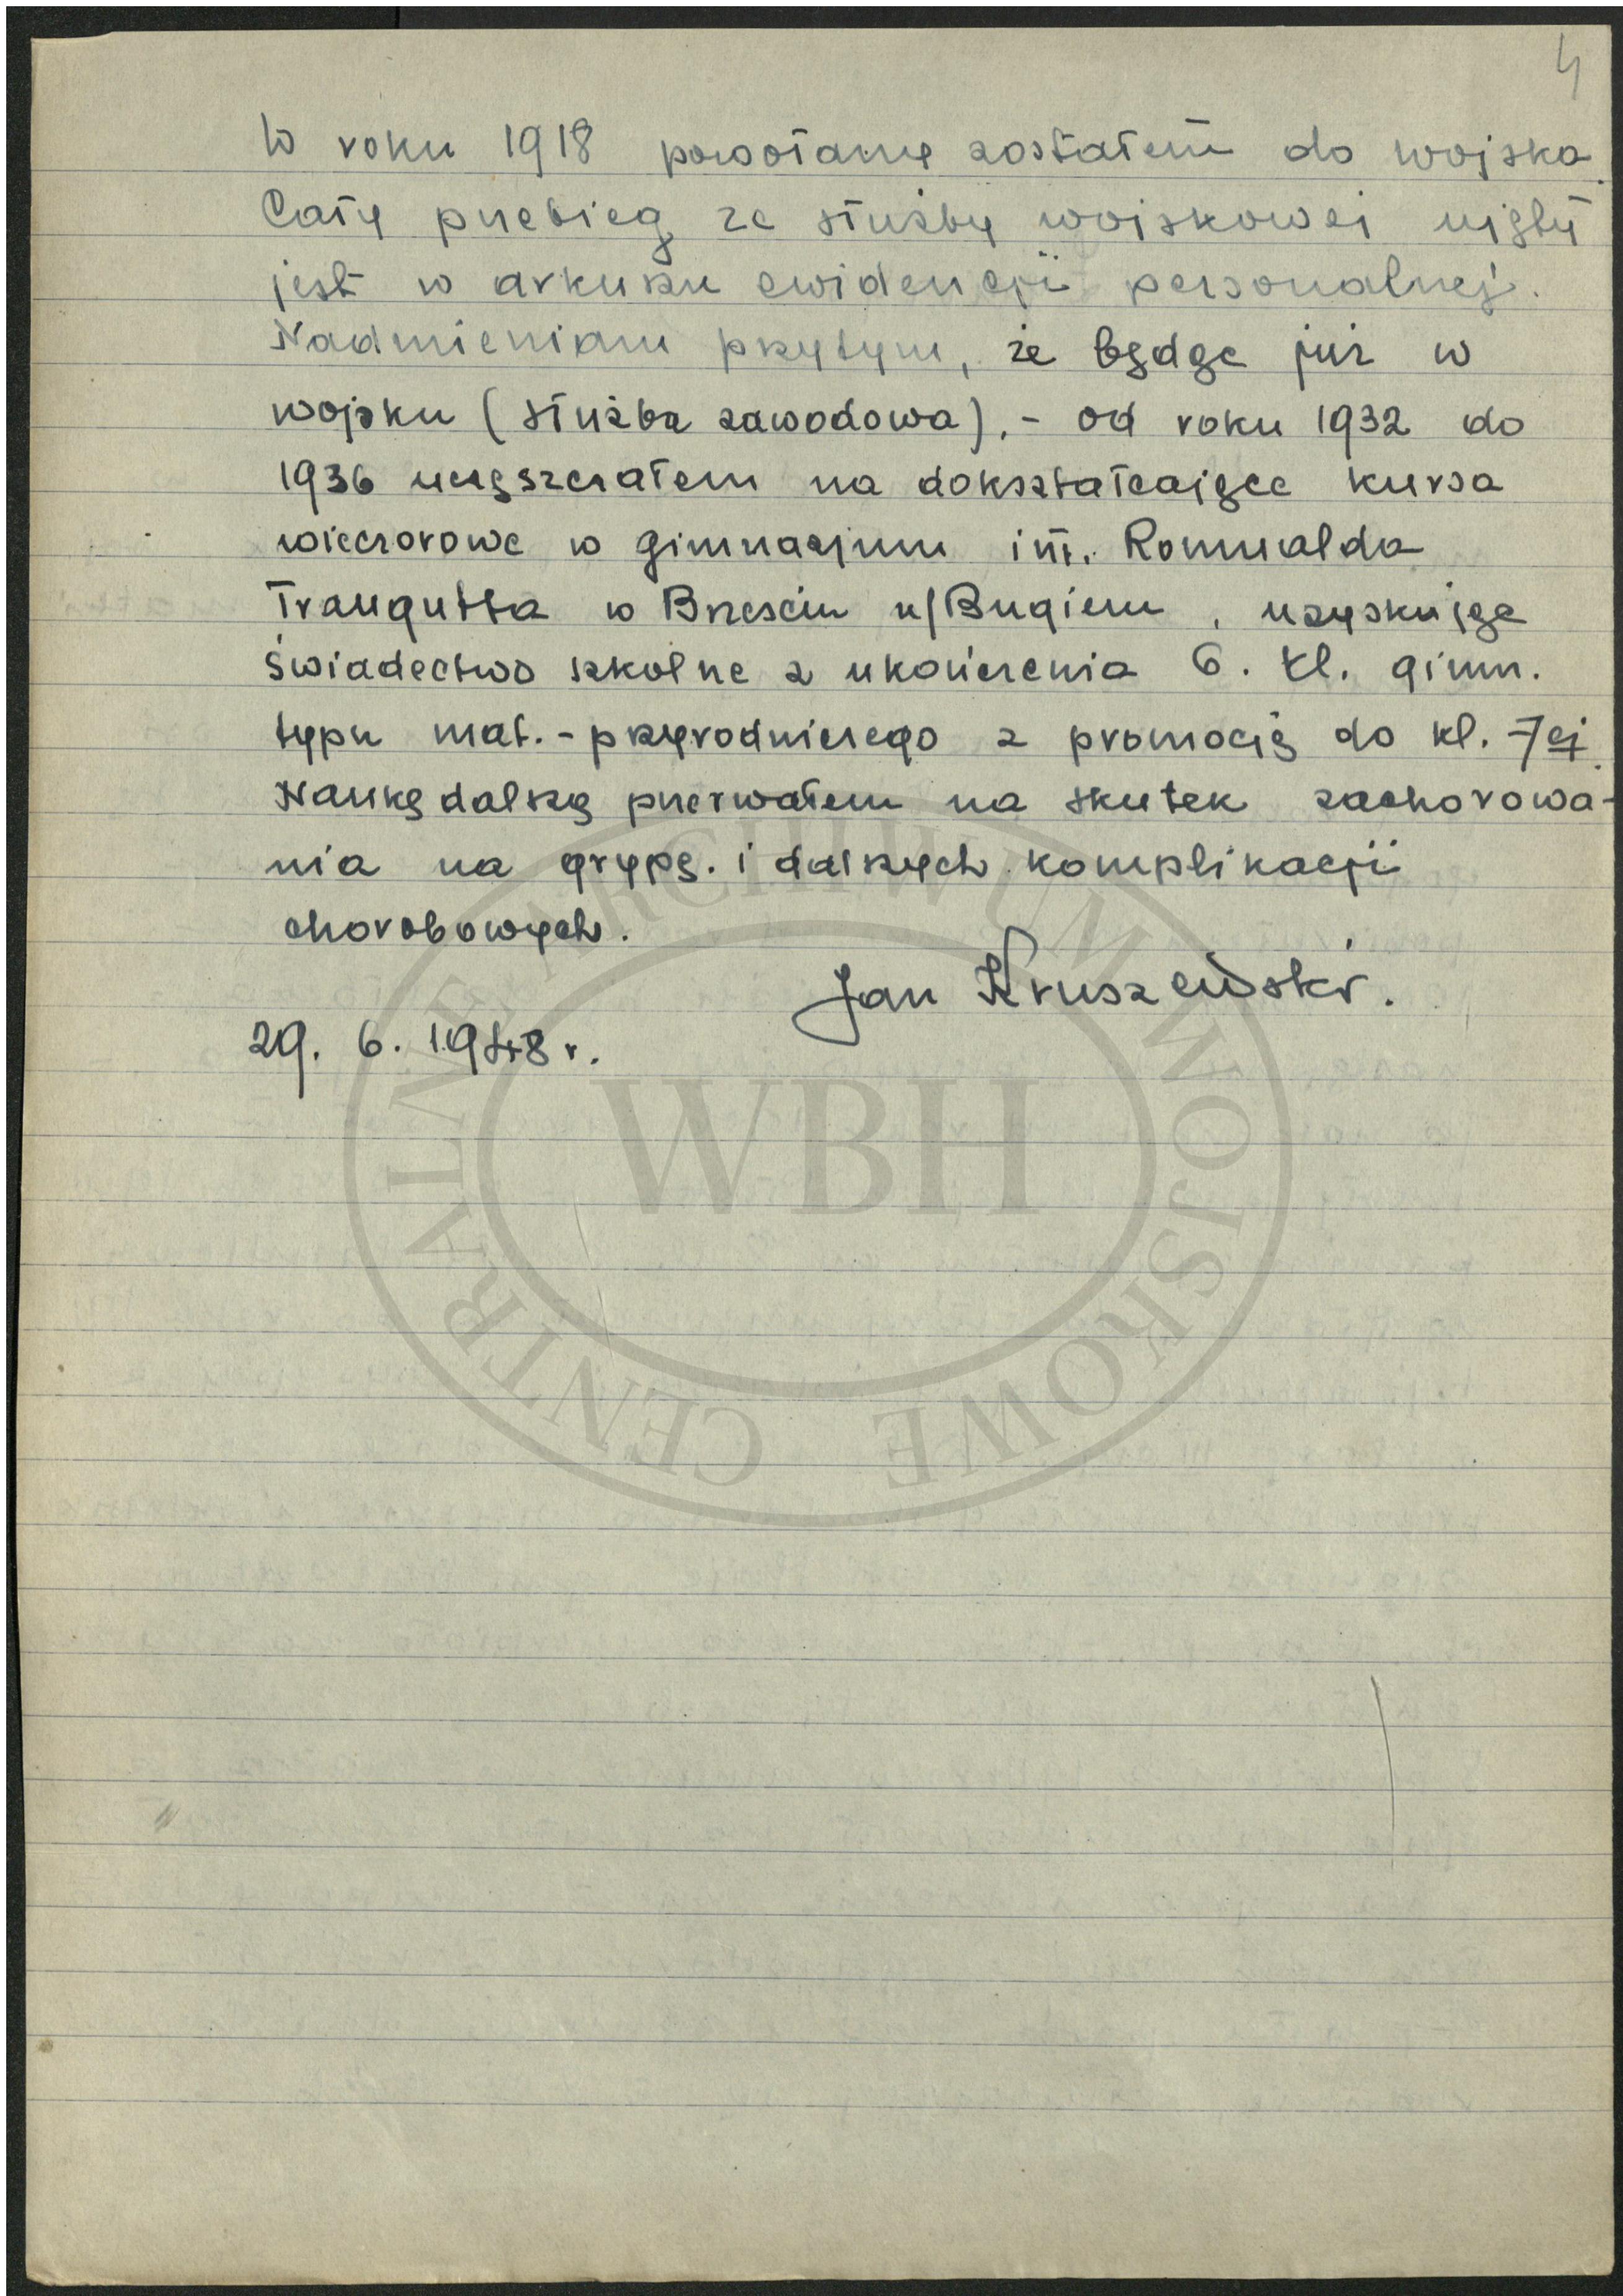 4
W roku 1918 powołany zostałem do wojska.
Cały przebieg ze służby wojskowej ujęty
jest w arkuszu ewidencji personalnej.
Nadmieniam przytym, że będąc już w
wojsku (służba zawodowa), - od roku 1932 do
1936 uczęszczałem na dokształcające kursa
wieczorowe w gimnazjum im. Romualda
Traugutta w Brześciu n/Bugiem, uzyskując
świadectwo szkolne z ukończenia 6. kl. gimn.
typu mat.-przyrodniczego z promocją do kl. 7ej.
Naukę dalszą przerwałem na skutek zachorowa-
nia na grypę. i dalszych komplikacji
chorobowych.
Jan Kruszewski.
29. 6. 1948 r.
CENTRALNE ARCHIWUM WOJSKOWE
WBH